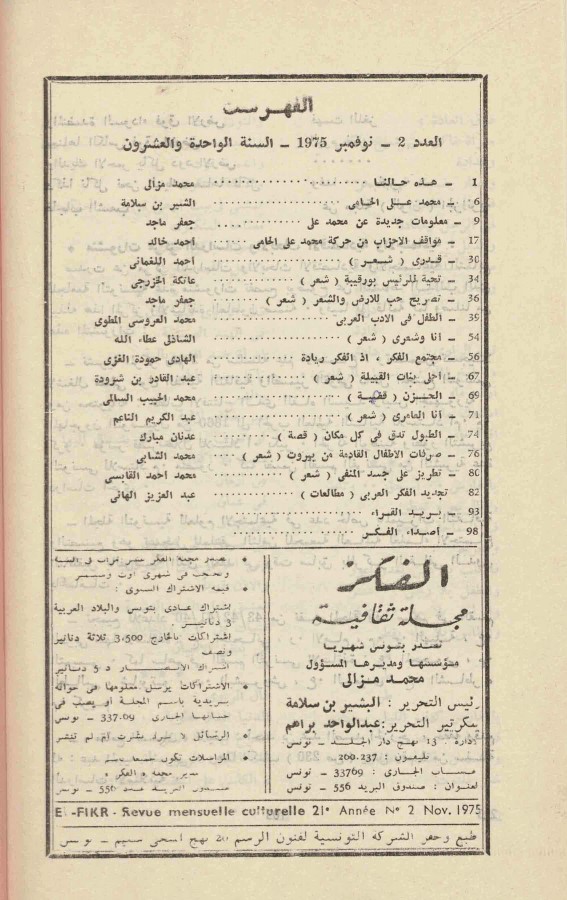 الفهرست
العدد 2 ـ نوفمبر 1975 ـ السنة الواحدة والعشرون
1 ـ هذه حالنا .......... محمد مزالي
6 ـ محمد عــلى الحامى .......... البشير بن سلامة
9 ـ معلومات جديدة عن محمد على .......... جعفر ماجد
17 ـ مواقف الاحزاب من حركة محمد على الحامى .......... أحمد خالد
30 ـ قدرى ( شعر ) .......... أحمد اللغمانى
34 ـ تحية للرئيس بورقيبة ( شعر ) .......... عاتكة الخزرجى
36 ـ تصريح حب للارض والشعر ( شعر ) .......... جعفر ماجد
39 ـ الطفل فى الادب العربى .......... محمد العروسى المطوى
54 ـ أنا وشعرى ( شعر ) .......... الشاذلى عطاء الله
56 ـ مجتمع الفكر ، اذ الفكر ريادة .......... الهادى حمودة الغزى
67 ـ أحلى بنات القبيلة ( شعر ) .......... عبد القادر بن شرودة
69 ـ الحــزن ( قصة ) .......... محمد الحبيب السالمى
71 ـ أنا العامرى ( شعر ) .......... عبد الكريم الناعم
74 ـ الطبول تدق فى كل مكان ( قصة ) .......... عدنان مبارك
76 ـ صرخات الاطفال القادمة من بيروت ( شعر ) .......... محمد الشابى
80 ـ تطريز على جسد المنفى ( شعر ) .......... محمد أحمد القابسى
82 تجديد الفكر العربى ( مطالعات ) .......... عبد العزيز الهانى
93 ـ بريد القراء ..........
98 ـ أصداء الفكر ..........
الفكر
مجلة ثقافية
تصدر بتونس شهريا
مؤسسها ومديرها المسؤول
محمد مزالى
رئيس التحرير : البشير بن سلامة
سكرتير التحرير : عبد الواحد براهم
ادارة : 13 نهج دار الجلد ـ تونس
تليفون : 260.237
حساب الجارى : 33769 ـ تونس
لعنوان : صندوق البريد 556 ـ تونس
تصدر مجلة الفكر عشر مرات فى السنة
وتحجب فى شهرى أوت وسبتمبر
قيمة الاشتراك السنوى :
إشتراك عادى بتونس والبلاد العربية
3 دنانير
اشتراكات بالخارج 3,500 ثلاثة دنانير
ونصف
اشتراك الانصار 5 دنانير
الاشتراكات يرسل معلومها فى حوالة
بريدية باسم المجلة أو يصب فى
حسابها الجارى 337.69 ـ تونس
الرسائل لا ترد نشرت أم لم تنشر
المراسلات تكون جميعا باسم
مدير مجلة « الفكر »
صندوق البريد عدد 556 ـ تونس
EL-FIKR - Revue mensuelle culturelle 21e Année No 2 Nov. 1975
طبع وحفر الشركة التونسية لفنون الرسم 20 نهج المنجى سليم ـ تونس